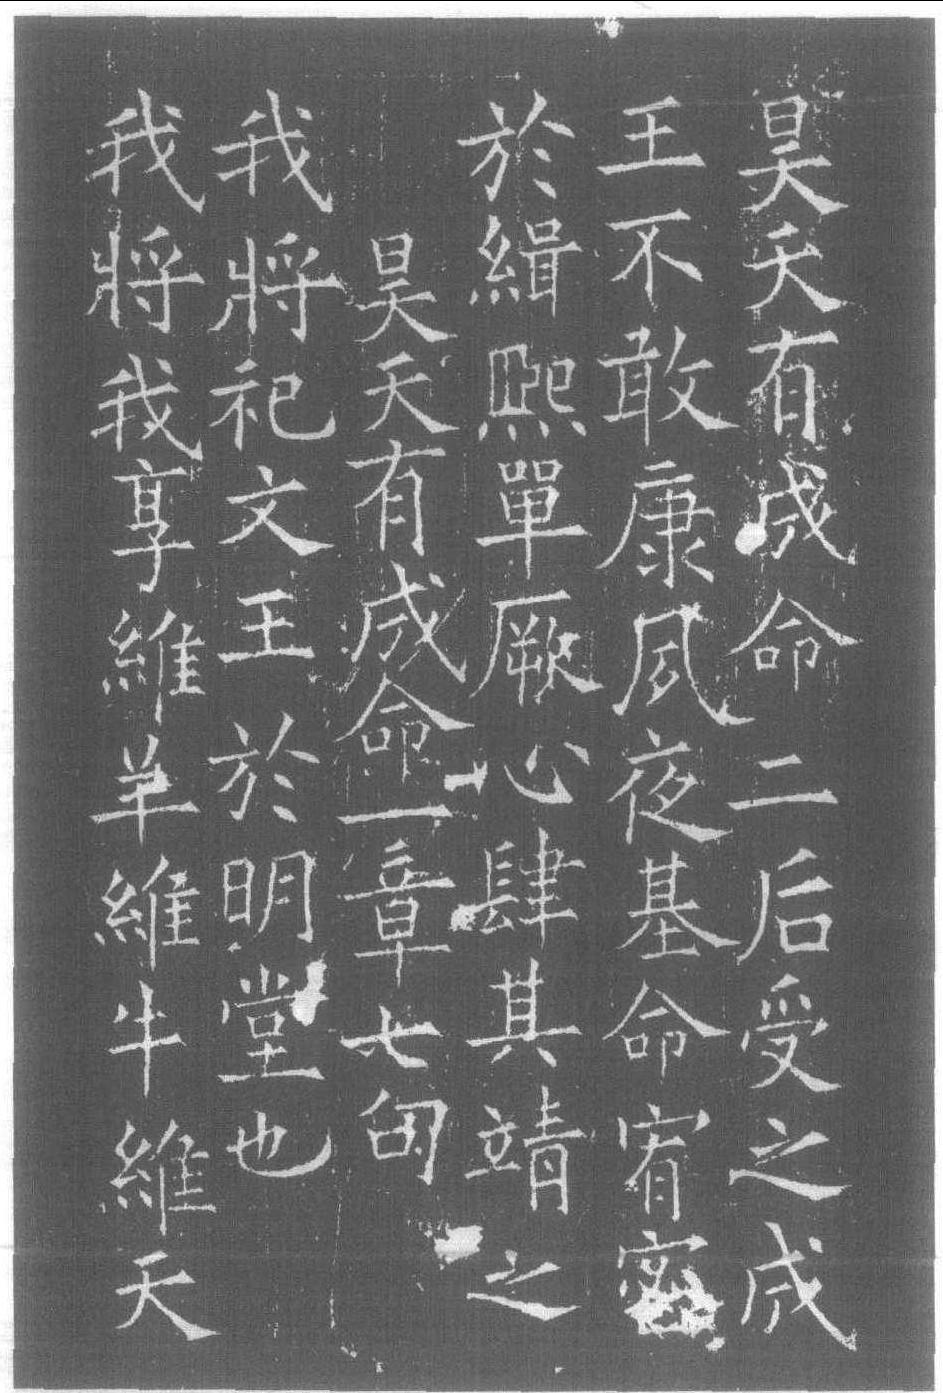 昊天有成命二后受之成
王不敢康夙夜基命宥密
於緝熙單厥心肆其靖之
昊天有成命一章七句
我將祀文王於明堂也
我將我享維羊維牛維天